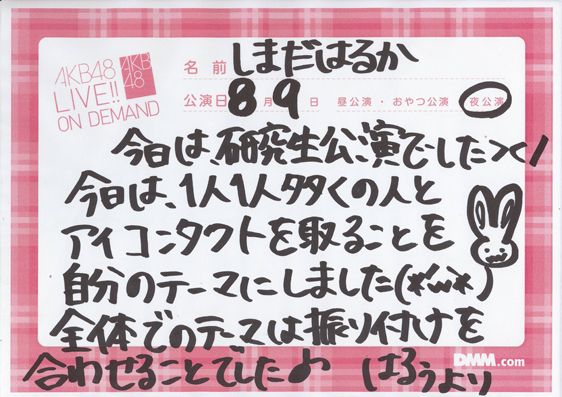 AKB48
LIVE!!
ON DEMAND
AKB
48
名前 しまだはるか
公演日 8月9日 昼公演・おやつ公演 夜公演
今日は、研究生公演でした><!
今日は、1人1人多くの人と
アイコンタクトを取ることを
自分のテーマにしました(*'ω'*)
全体でのテーマは振り付けを
合わせることでした♪ はるぅより
DMM.com